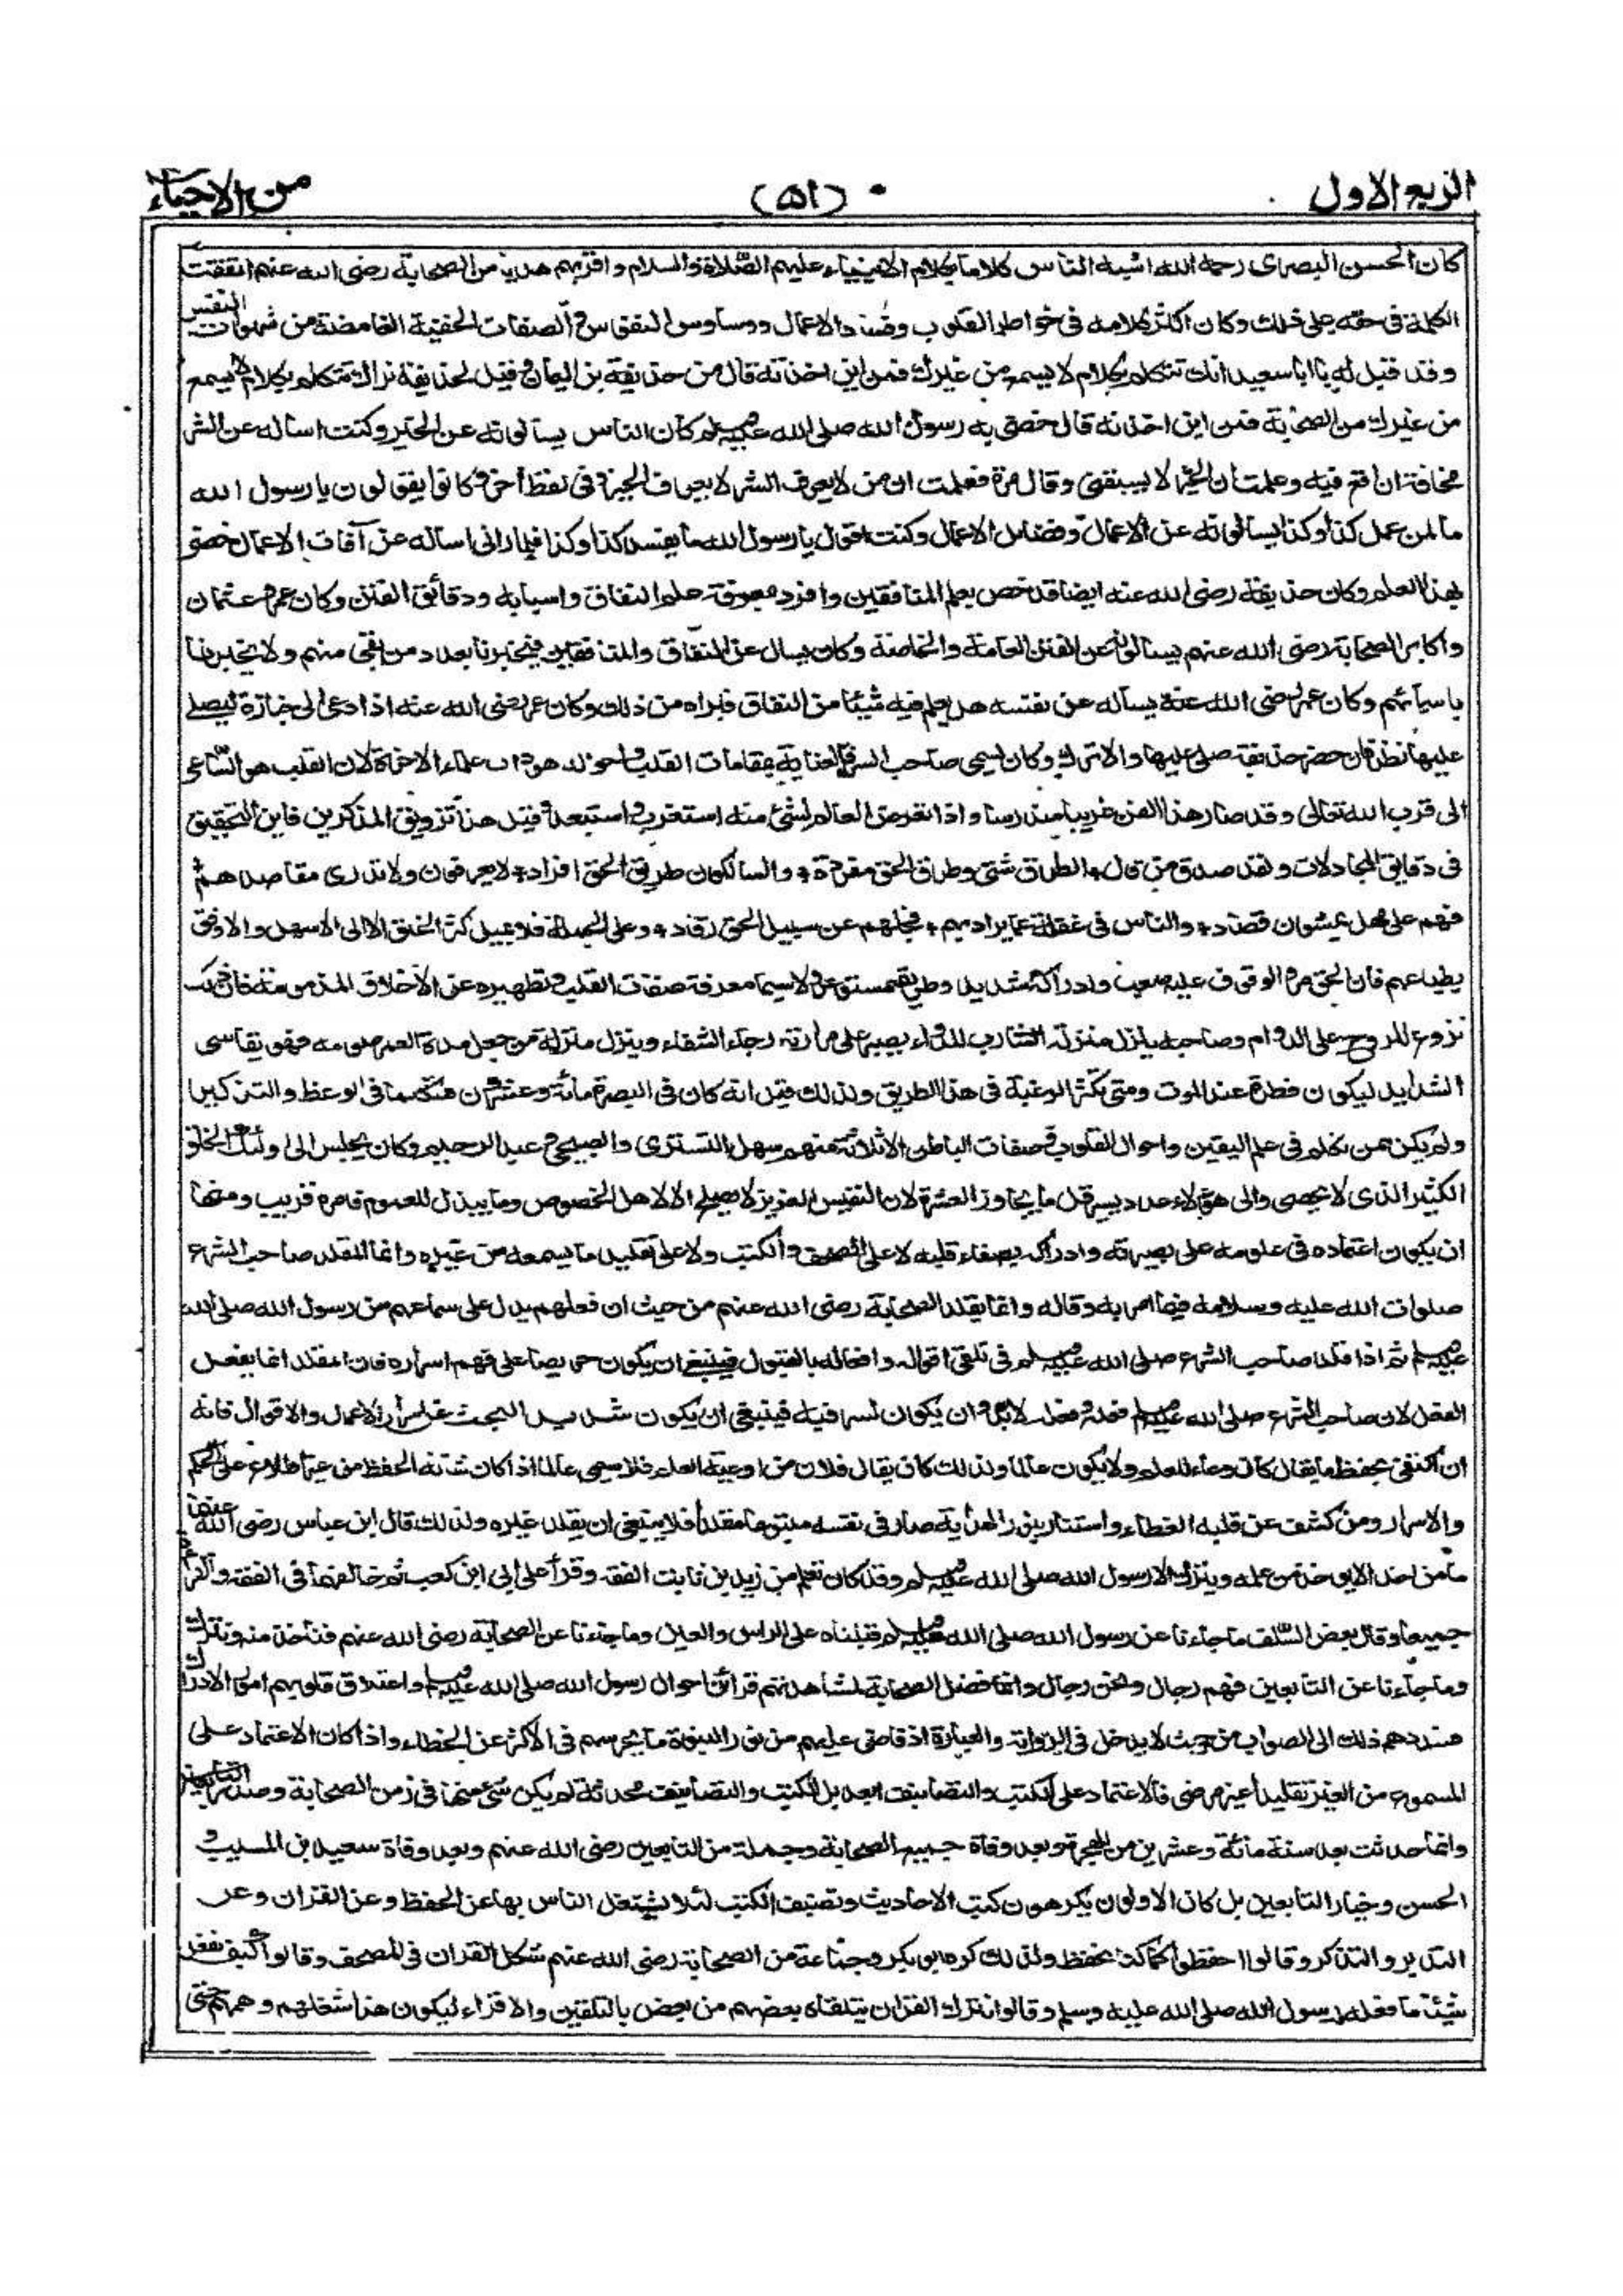 الربع الاول
(٥١)
من الاحياء
كان الحسن البصرى رحمه الله اشبه الناس كلاما بكلام الانبياء عليهم الصلاة والسلام واقربهم هديا من الصحابة رضى الله عنهم اتفقت
الكلمة فى حقه على ذلك وكان اكثر كلامه فى خواطر القلوب وفساد الاعمال ووساوس النفوس والصفات الخفية الغامضة من شهوات النفس
وقد قيل له يا ابا سعيد انك تتكلم بكلام لا يسمع من غيرك فمن اين اخذته قال من حذيفة بن اليمان وقيل لحذيفة نراك تتكلم بكلام لا يسمع
من غيرك من الصحابة فمن اين اخذته قال خصنى به رسول الله صلى الله عليه وسلم كان الناس يسألونه عن الخير وكنت اسأله عن الشر
مخافة ان اقع فيه وعلمت ان الخير لا يسبقنى وقال مرة فعلمت ان من لا يعرف الشر لا يعرف الخير وفى لفظ آخر كانوا يقولون يا رسول الله
ما لمن عمل كذا وكذا يسألونه عن الاعمال وفضائل الاعمال وكنت اقول يا رسول الله ما يفسد كذا وكذا فلما رانى اساله عن آفات الاعمال خصنى
بهذا العلم وكان حذيفة رضى الله عنه ايضا قد خص بعلم المنافقين وافرد بمعرفة علم النفاق واسبابه ودقائق الفتن وكان عمر وعثمان
واكابر الصحابة رضى الله عنهم يسألونه عن الفتن العامة والخاصة وكان يسال عن النفاق والمنافقين فيخبرنا بعدد من بقى منهم ولا يخبرنا
باسمائهم وكان عمر رضى الله عنه يسأله عن نفسه هل يعلم فيه شيئا من النفاق فبراه من ذلك وكان عمر رضى الله عنه اذا دعى الى جنازة ليصلى
عليها نظر فان حضر حذيفة صلى عليها والا ترك وكان يسمى صاحب السر فالعناية بمقامات القلب واحواله هو داب علماء الاخرة لان القلب هو الساعى
الى قرب الله تعالى وقد صار هذا الفن غريبا مندرسا واذا تعرض العالم لشئ منه استغرب واستبعد وقيل هذا تزويق المذكرين فاين التحقيق
فى دقايق المجادلات ولقد صدق من قال الطرق شتى وطرق الحق مفردة والسالكون طريق الحق افراد لا يعرفون ولا تدرى مقاصدهم
فهم على مهل يمشون قصاد والناس فى غفلة عما يراد بهم فجلهم عن سبيل الحق رقاد وعلى الجملة فلا يميل اكثر الخلق الا الى الاسهل والاوفق
بطباعهم فان الحق مر والوقوف عليه صعب وادراكه شديد وطريقه مستوعر ولا سيما معرفة صفات القلب وتطهيره عن الاخلاق المذمومة فان ذلك
نزوع للروح على الدوام وصاحبه ينزل منزلة الشارب للدواء يصبر على مرارته رجاء الشفاء وينزل منزلة من جعل مدة العمر صومه فهو يقاسى
الشدايد ليكون فطره عند الموت ومتى تكثر الرغبة فى هذا الطريق ولذلك قيل انه كان فى البصرة مائة وعشرون متكلما فى الوعظ والتذكير
ولم يكن من يتكلم فى علم اليقين واحوال القلوب وصفات الباطن الا ثلاثة منهم سهل التسترى والصبيحى وعبد الرحيم وكان يجلس الى اولئك الخلق
الكثير الذى لا يحصى والى هؤلاء عدد يسير قل ما يجاوز العشرة لان النفيس العزيز لا يصلح الا لاهل الخصوص وما يبذل للعموم فامره قريب ومنها
ان يكون اعتماده فى علومه على بصيرته وادراكه بصفاء قلبه لا على الصحف والكتب ولا على تقليد ما يسمعه من غيره وانما المقلد صاحب الشرع
صلوات الله عليه وسلامه فيما امر به وقاله وانما يقلد الصحابة رضى الله عنهم من حيث ان فعلهم يدل على سماعهم من رسول الله صلى الله
عليه وسلم ثم اذا قلد صاحب الشرع صلى الله عليه وسلم فى تلقى اقواله وافعاله بالقبول فينبغى ان يكون حريصا على فهم اسراره فان المقلد انما يفعل
الفعل لان صاحب الشرع صلى الله عليه وسلم فعله وفعله لا بد وان يكون لسر فيه فينبغى ان يكون شديد البحث عن اسرار الاعمال والاقوال فانه
ان اكتفى بحفظ ما يقال كان وعاء للعلم ولا يكون عالما ولذلك كان يقال فلان من اوعية العلم فلا يسمى عالما اذا كان شانه الحفظ من غير اطلاع على الحكم
والاسرار ومن كشف عن قلبه الغطاء واستنار بنور الهداية صار فى نفسه متبوعا مقلدا فلا ينبغى ان يقلد غيره ولذلك قال ابن عباس رضى الله عنهما
ما من احد الا يوخذ من علمه ويترك الا رسول الله صلى الله عليه وسلم وقد كان تعلم من زيد بن ثابت الفقه وقرأ على ابى ابن كعب ثم خالفهما فى الفقه والقراءة
جميعا وقال بعض السلف ما جاءنا عن رسول الله صلى الله عليه وسلم قبلناه على الراس والعين وما جاءنا عن الصحابة رضى الله عنهم فنأخذ منه ونترك
وما جاءنا عن التابعين فهم رجال ونحن رجال وانما فضل الصحابة لمشاهدتهم قرائن احوال رسول الله صلى الله عليه وسلم واعتلاق قلوبهم امورا لادراك
فسددهم ذلك الى الصواب من حيث لا يدخل فى الرواية والعبارة اذ فاض عليهم من نور النبوة ما يحرسهم فى الاكثر عن الخطاء واذا كان الاعتماد على
المسموع من الغير تقليدا غير مرضى فالاعتماد على الكتب والتصانيف ابعد بل الكتب والتصانيف محدثة لم يكن شئ منها فى زمن الصحابة وصدر التابعين
وانما حدثت بعد سنة مائة وعشرين من الهجرة وبعد وفاة جميع الصحابة وجملة من التابعين رضى الله عنهم وبعد وفاة سعيد بن المسيب و
الحسن وخيار التابعين بل كان الاولون يكرهون كتب الاحاديث وتصنيف الكتب لئلا يشتغل الناس بها عن الحفظ وعن القران وعن
التدبر والتذكر وقالوا احفظوا كما كنا نحفظ ولذلك كره ابو بكر وجماعة من الصحابة رضى الله عنهم شكل القران فى المصحف وقالوا كيف نفعل
شيئا ما فعله رسول الله صلى الله عليه وسلم وقالوا نترك القران يتلقاه بعضهم من بعض بالتلقين والاقراء ليكون هذا شغلهم وهمهم حتى